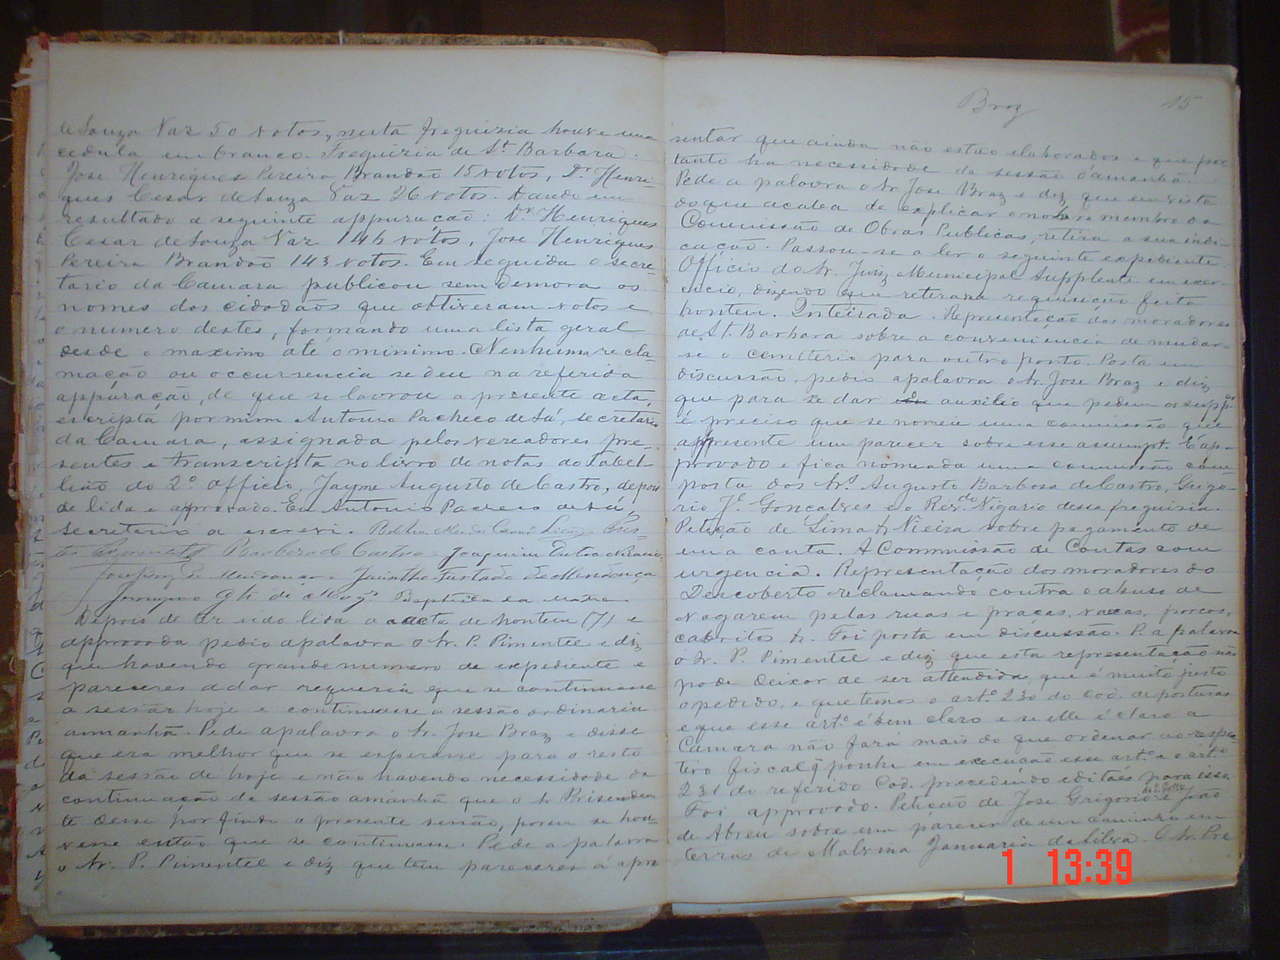 de Souza Vaz 50 votos, nesta freguizia houve uma
cedula em branco. Freguizia de Sta. Barbara:
José Henriques Pereira Brandão 15 votos, Dr. Henri-
ques Cesar de Souza Vaz 26 votos. Dando em
resultado a seguinte appuração: Dr. Henriques
Cesar de Souza Vaz 146 votos, José Henriques
Pereira Brandão 143 votos. Em seguida o secre
tario da Camara publicou sem demora os
nomes dos cidadãos que obtiveram votos e
o numero destes, formando uma lista geral
desde o maximo até o minimo. Nenhuma recla
mação ou occurrencia se deu na referida
appuração, de que se lavrou a presente acta,
escripta por mim Antonio Pacheco de Sá, secretario
da Camara, assignada pelos vereadores pre-
sentes e transcripta no livro de notas do tabel-
lião do 2º officio, Jayme Augusto de Castro, depois
de lida e approvada. Eu Antonio Pacheco de Sá,
secretario a escrevi.
Barbosa de Castro Joaquim
Jacintho Furtado de Mendonça
Baptista da Matta
Depois de ter sido lida a acta de hontem (7) e
approvada pedio a palavra o Sr. P. Pimentel e diz
que havendo grande numero de expediente e
pareceres a dar requeria que se continuasse
a sessão hoje e continuasse a sessão ordinaria
amanhã. Pede a palavra o Sr. José Braz e disse
que era melhor que se esperasse para o resto
da sessão de hoje e não havendo necessidade da
continuação da sessão amanhã que o Sr. Presiden
te desse por finda a presente sessão, porem se hou
vesse então que se continuasse. Pede a palavra
o Sr. P. Pimentel e diz que tem pareceres á apre
Braz 15
sentar que ainda não estão elaborados e que por
tanto ha necessidade da sessão d'amanhã.
Pede a palavra o Sr. José Braz e diz que em vista
do que acaba de explicar o nobre membro da
Commissão de Obras Publicas, retira a sua indi-
cação. Passou-se a ler o seguinte expediente.
Officio do Sr. Juiz Municipal Supplente em exer-
cicio, dizendo que retirava requisição feita
hontem. Inteirada. Representação dos moradores
de Sta. Barbara sobre a conveniencia de mudar-
se o cemiterio para outro ponto. Posta em
discussão, pedio a palavra o Sr. José Braz e diz
que para se dar auxilio que pedem os supptes
é preciso que se nomeie uma commissão que
appresente um parecer sobre esse assumpto. É ap-
provado e fica nomeada uma commissão com
posta dos Srs. Augusto Barbosa de Castro, Grego-
rio Je. Gonçalves e o Revdo. Vigario dessa freguizia.
Petição de Lima & Vieira sobre pagamento de
uma conta. A Commissão de Contas com
urgencia. Representação dos moradores do
Descoberto reclamando contra o abuso de
vagarem pelas ruas e praças, vaccas, porcos,
cabritos &. Foi posta em discussão. P. a palavra
o Sr. P. Pimentel e diz que esta representação não
pode deixar de ser attendida, que é muito justo
o pedido, e que temos o artº. 230 do Cod. de posturas
e que esse artº. é bem claro e se elle é claro a
Camara não fará mais do que ordenar ao respe-
tivo fiscal q' ponha em execução esse artº. e o artº.
231 do referido Cod. precedendo editaes para isso.
Foi approvado. Petição de José Grigorio e João
de Abreu sobre um parecer de um caminho em
terras de Malvina Januaria da Silva. O Sr. Pre
1 13:39